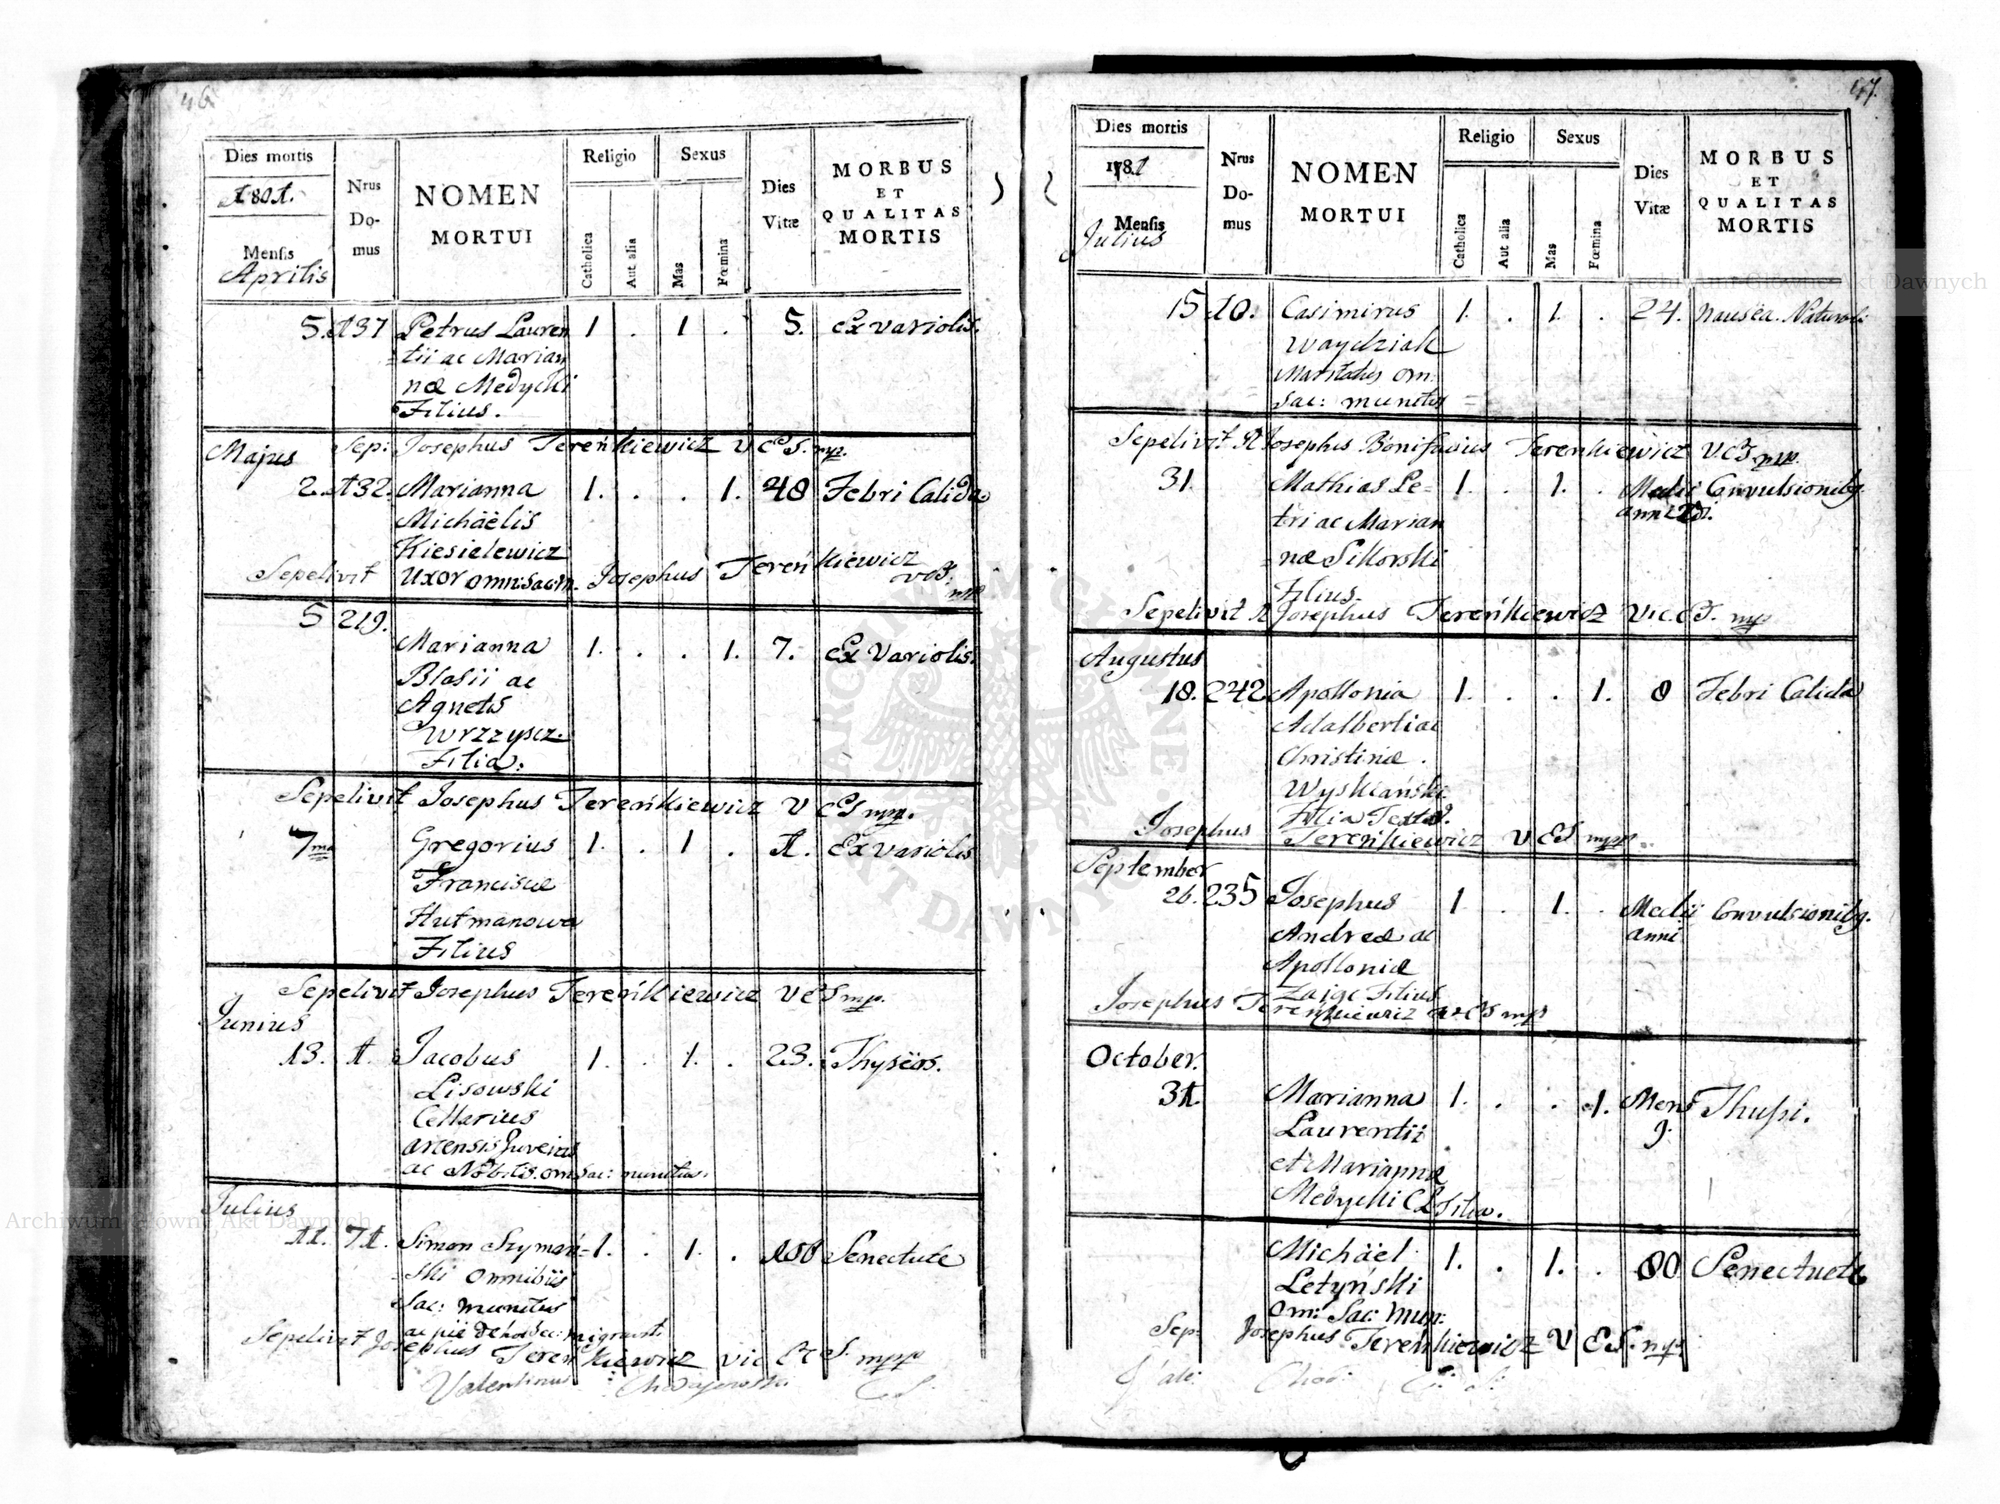 46
Dies mortis
1801.
Mensis
Aprilis
Nrus
Do-
mus
NOMEN
MORTUI
Religio
Catholica
Aut alia
Sexus
Mas
Fœmina
Dies
Vitæ
MORBUS
ET
QUALITAS
MORTIS
5. 137 Petrus Lauren 1 . 1 . 5. Ex variolis.
=tii ac Marian
næ Medycki
Filius.
Sep: Josephus Tereńkiewicz V C S. mp.
Majus
2. 132. Marianna 1. . . 1. 48 Febri Calida
Michäelis
Kiesielewicz
Uxor omni: Sac: m.
Sepelivit Josephus Tereńkiewicz
VCS. mp
5 219.
Marianna 1. . . 1. 7. Ex Variolis.
Blasii ac
Agnetis
Wrzzyscz=
Filia.
Sepelivit Josephus Tereńkiewicz V C S mp.
7ma Gregorius 1. . 1 . 1. Ex variolis
Franciscæ
Hutmanowa
Filius
Sepelivit Josephus Tereńkiewicz V C S mp.
Junius
13. 1. Jacobus 1. . 1. . 23. Thysëos.
Lisowski
Cellarius
Juvenis
ac Nobilis. om Sac: munitus.
Julius
11. 71. Simon Szymań= 1. . 1. . 100 Senectute
=ski omnibüs
Sac: munitus
ac piè
Sepelivit Josephus Tereńkiewicz Vic C S. mpp
Valentinus
47.
Dies mortis
1801
Mensis
Julius
Nrus
Do-
mus
NOMEN
MORTUI
Religio
Catholica
Aut alia
Sexus
Mas
Fœmina
Dies
Vitæ
MORBUS
ET
QUALITAS
MORTIS
15 10. Casimirus 1. . 1. . 24. Nausëa Naturali
Waydziak
Maritatus om:
Sac: munitus
Sepelivit R Josephus Bonifacius Tereńkiewicz V.C.S. mpp.
31. Mathias Pe= 1. . 1. . Medii Convulsionibq.
tri ac Marian anni
næ Sikorski
Filius.
Sepelivit R Josephus Tereńkiewicz Vic. C S. mp
Augustus
18. 242 Apollonia 1. . . 1. 8 Febri Calida
Adalberti ac
Christinæ.
Wyskiański.
Filia
Josephus Tereńkiewicz V C S mpp.
September
26. 235 Josephus 1 . 1. . Medii Convulsionibq.
Andreæ ac anni
Apolloniæ
Zajac Filius
Josephus Tereńkiewicz V C S mpp
October.
31. Marianna 1. . . 1. Mens Thusßi.
Laurentii 9.
et Mariannæ
Medycki C L Filia.
Michäel 1. . 1. . 80 Senectute
Letyński
Om: Sac: Mun:
Sep: Josephus Tereńkiewicz V C S. mpp
Archiwum Główne Akt Dawnych
Archiwum Główne Akt Dawnych
ARCHIWUM GŁÓWNE AKT DAWNYCH